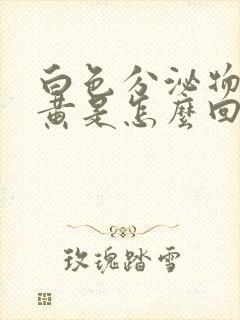 白色分泌物
黄是怎麼回
玫瑰踏雪